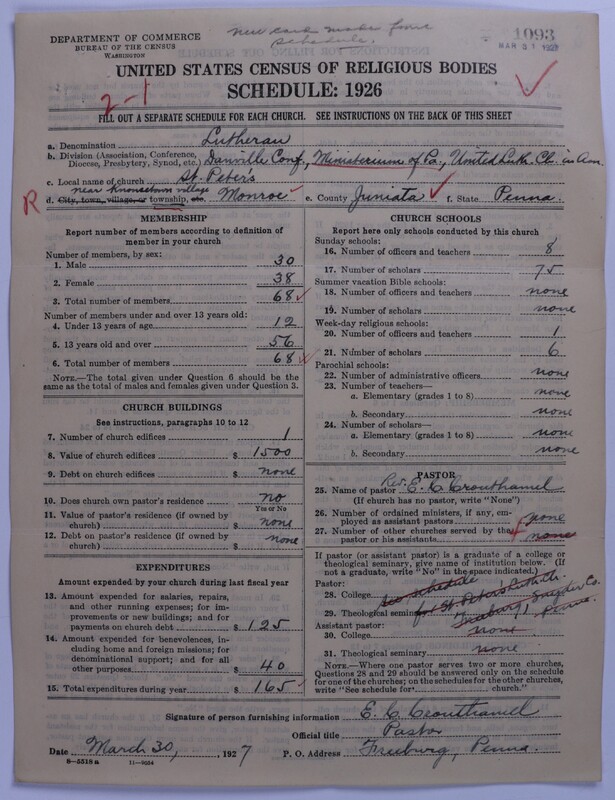 New card made from
schedule.
1093
MAR 31 1927
DEPARTMENT OF COMMERCE
BUREAU OF THE CENSUS
WASHINGTON
UNITED STATES CENSUS OF RELIGIOUS BODIES
SCHEDULE: 1926
2-1
FILL OUT A SEPARATE SCHEDULE FOR EACH CHURCH. SEE INSTRUCTIONS ON THE BACK OF THIS SHEET
a. Denomination Lutheran
b. Division (Association, Conference, Diocese, Presbytery, Synod, etc.) Danville Conf., Ministerium of Pa., United Luth. Ch. in Am.
c. Local name of church St. Peter's
near village
R d. City, town, village, or township, etc. Monroe e. County Juniata f. State Penna.
MEMBERSHIP
Report number of members according to definition of member in your church
Number of members, by sex:
1. Male 30
2. Female 38
3. Total number of members 68
Number of members under and over 13 years old:
4. Under 13 years of age 12
5. 13 years old and over 56
6. Total number of members 68
NOTE.—The total given under Question 6 should be the same as the total of males and females given under Question 3.
CHURCH BUILDINGS
See instructions, paragraphs 10 to 12
7. Number of church edifices 1
8. Value of church edifices $ 1500
9. Debt on church edifices $ none
10. Does church own pastor's residence no
Yes or No
11. Value of pastor's residence (if owned by church) $ none
12. Debt on pastor's residence (if owned by church) $ none
EXPENDITURES
Amount expended by your church during last fiscal year
13. Amount expended for salaries, repairs, and other running expenses; for improvements or new buildings; and for payments on church debt $ 125
14. Amount expended for benevolences, including home and foreign missions; for denominational support; and for all other purposes $ 40
15. Total expenditures during year $ 165
CHURCH SCHOOLS
Report here only schools conducted by this church
Sunday schools:
16. Number of officers and teachers 8
17. Number of scholars 75
Summer vacation Bible schools:
18. Number of officers and teachers none
19. Number of scholars none
Week-day religious schools:
20. Number of officers and teachers 1
21. Number of scholars 6
Parochial schools:
22. Number of administrative officers none
23. Number of teachers—
a. Elementary (grades 1 to 8) none
b. Secondary none
24. Number of scholars—
a. Elementary (grades 1 to 8) none
b. Secondary none
PASTOR
25. Name of pastor Rev. E. C. Crouthamel
(If church has no pastor, write "None")
26. Number of ordained ministers, if any, employed as assistant pastors none
27. Number of other churches served by the pastor or his assistants 4 none
If pastor (or assistant pastor) is a graduate of a college or theological seminary, give name of institution below. (If not a graduate, write "No" in the space indicated.)
Pastor:
28. College see schedule
29. Theological seminary for St. Peter's Luth.
Freeburg, Snyder Co.
Assistant pastor: Penna.
30. College none
31. Theological seminary none
NOTE.—Where one pastor serves two or more churches, Questions 28 and 29 should be answered only on the schedule for one of the churches; on the schedules for the other churches, write "See schedule for church."
Signature of person furnishing information E. C. Crouthamel
Official title Pastor
Date March 30, 1927 P. O. Address Freeburg, Penna.
8—5518 a 11—9054